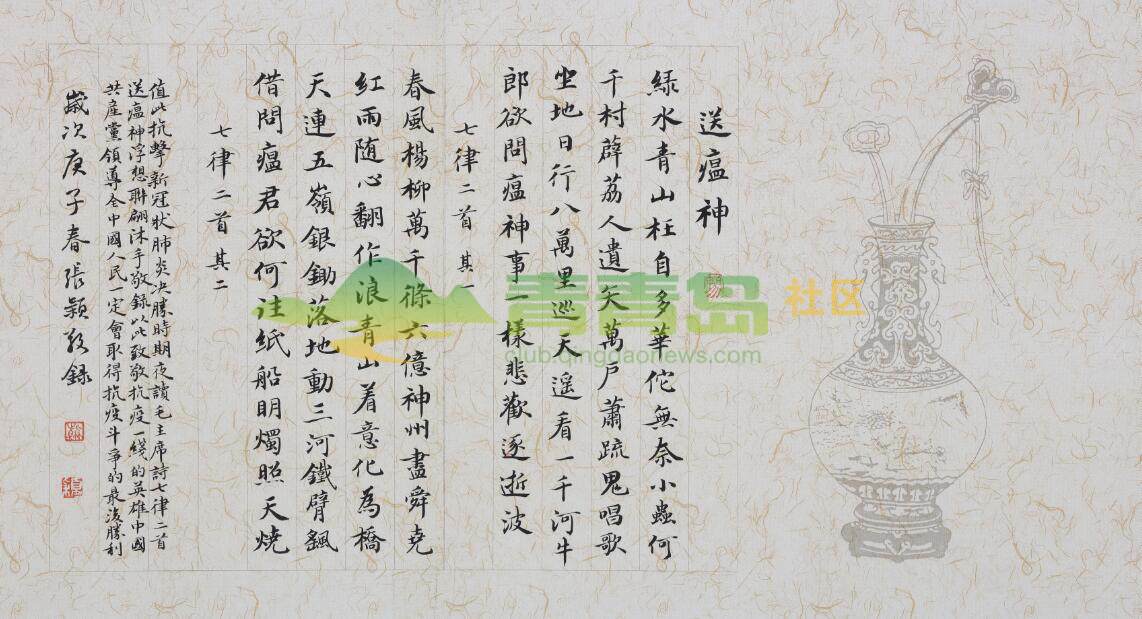 送瘟神
緑水青山枉自多華佗無奈小蟲何
千村薜荔人遺矢萬戶蕭疏鬼唱歌
坐地日行八萬里巡天遥看一千河牛
郎欲問瘟神事一樣悲歡逐逝波
七律二首 其一
春風楊柳萬千條六億神州盡舜堯
紅雨随心翻作浪青山着意化為橋
天連五嶺銀鋤落地動三河鐵臂颻
借問瘟君欲何往紙船明燭照天燒
七律二首 其二
值此抗擊新冠狀肺炎决勝時期夜讀毛主席詩七律二首
送瘟神浮想聯翩沐手敬録以此致敬抗疫一綫的英雄中國
共產黨領導全中國人民一定會取得抗疫斗爭的最後勝利
歲次庚子春張穎敬錄
青青岛社区
club.qingdaonews.com